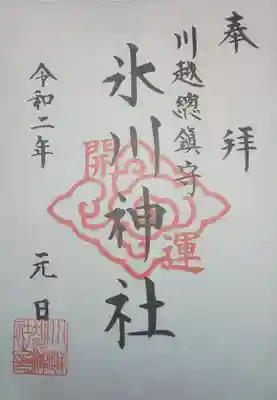 奉拝
川越總鎮守
氷川神社
開運
令和二年 元日